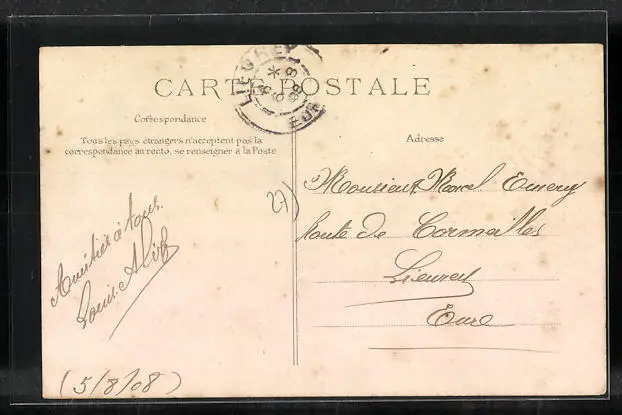 LIEUREY
EURE
CARTE POSTALE
Correspondance
Tous les pays étrangers n'acceptent pas la
correspondance au recto, se renseigner à la Poste
Adresse
Monsieur Marcel Emery
Route de Cormeilles
Lieurey
Eure
27)
Amitiés à tous.
Louis
(5/8/08)